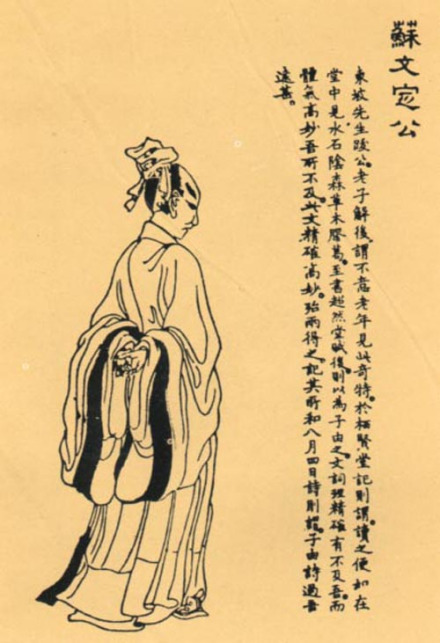 蘇文定公
東坡先生跋公老子解後謂不意老年見此奇特於栖賢堂記則謂讀之便如在
堂中見水石陰森草木膠葛至書超然堂賦後則以為子由之文詞理精確有不及吾而
體氣高妙吾所不及此文精確高妙殆兩得之記其所和八月四日詩則謂子由詩過吾
遠甚